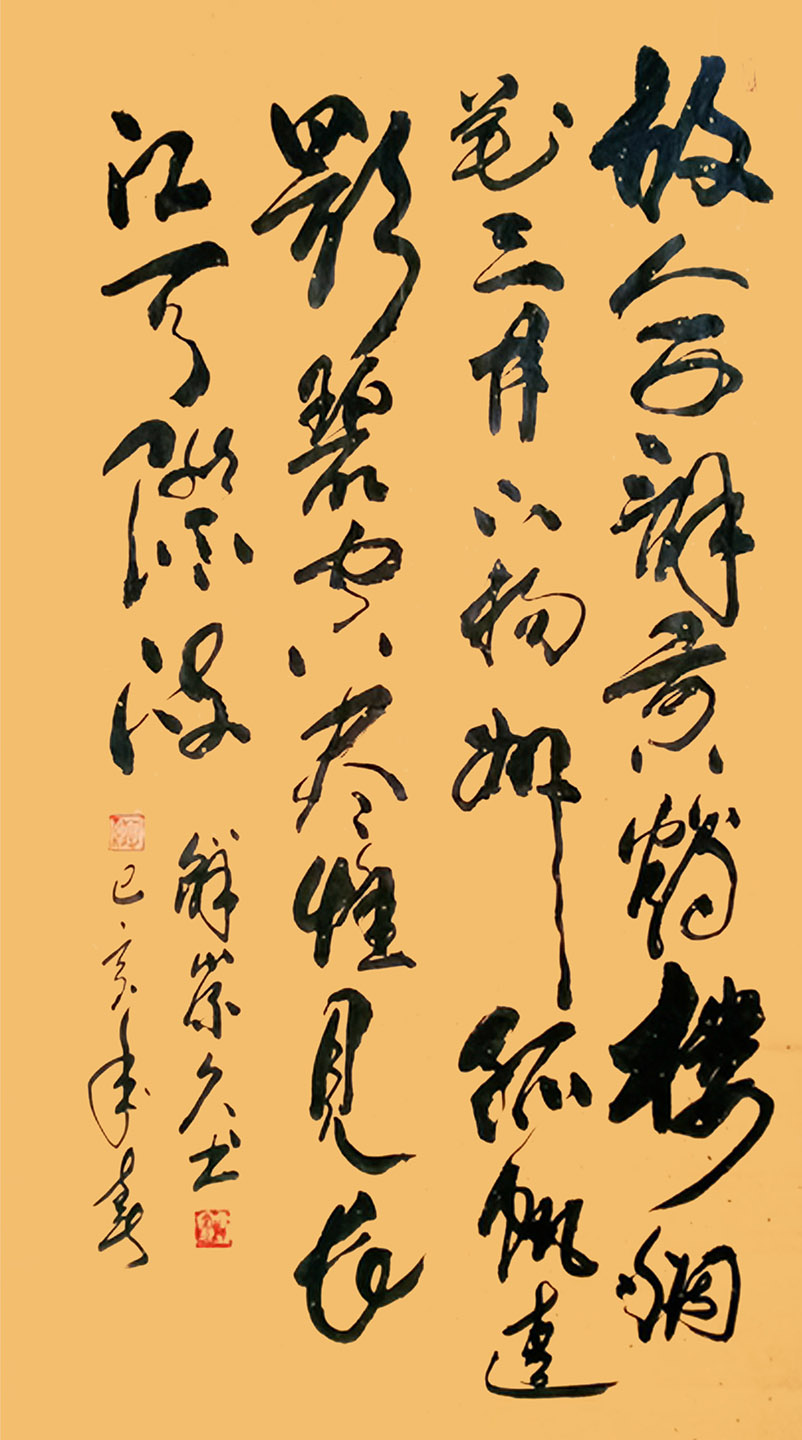 故人西辞黄鹤楼烟
花三月下扬州孤帆远
影碧空尽惟见长
江天际流
解崇久书
己亥年春